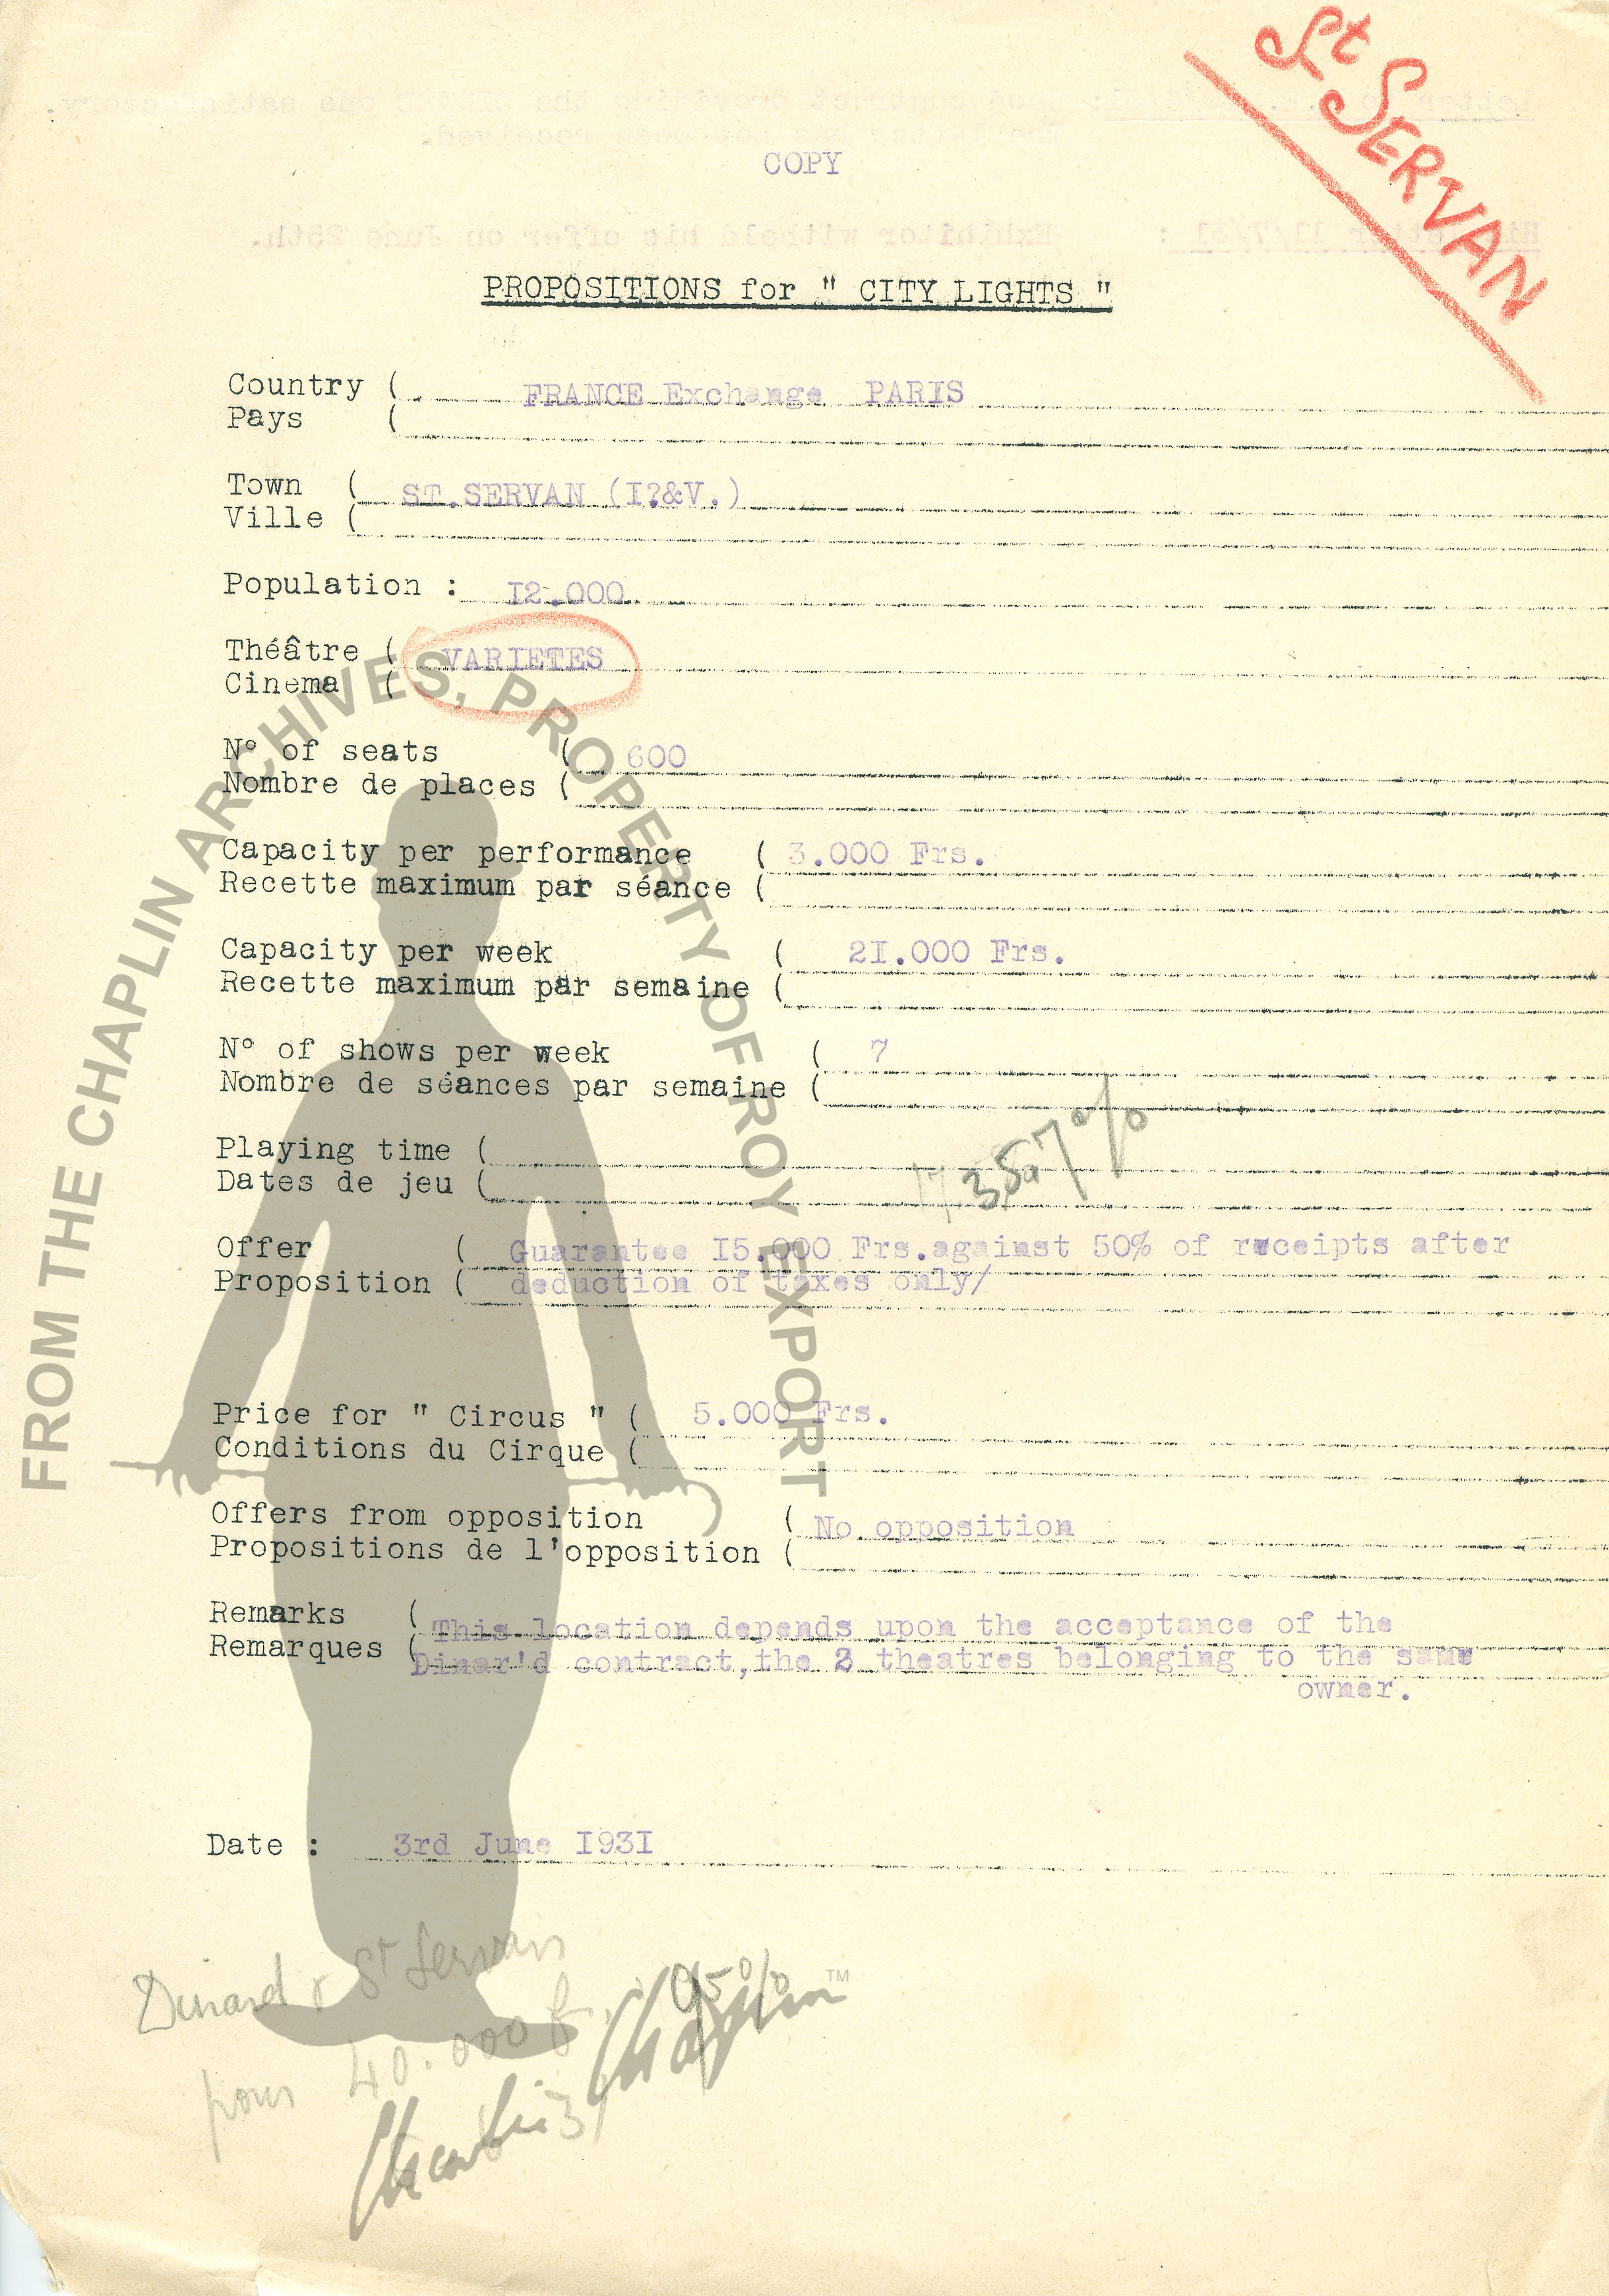 St SERVAN
COPY
PROPOSITIONS for " CITY LIGHTS "
Country ( FRANCE Exchange PARIS
Pays (
Town ( ST.SERVAN (I?&V.)
Ville (
Population : I2.000
Théâtre ( VARIETES
Cinema (
N° of seats ( 600
Nombre de places (
Capacity per performance ( 3.000 Frs.
Recette maximum par séance (
Capacity per week ( 2I.000 Frs.
Recette maximum par semaine (
N° of shows per week ( 7
Nombre de séances par semaine (
Playing time (
Dates de jeu (
Offer ( Guarantee I5.000 Frs.against 50% of receipts after
Proposition ( deduction of taxes only/
Price for " Circus " ( 5.000 Frs.
Conditions du Cirque (
Offers from opposition ( No opposition
Propositions de l'opposition (
Remarks ( This location depends upon the acceptance of the
Remarques ( Dinar'd contract,the 2 theatres belonging to the same
owner.
Date : 3rd June I93I
Dinard & St Servan
pour 40.000 f
95%
Charlie Chaplin ™
FROM THE CHAPLIN ARCHIVES, PROPERTY OF ROY EXPORT